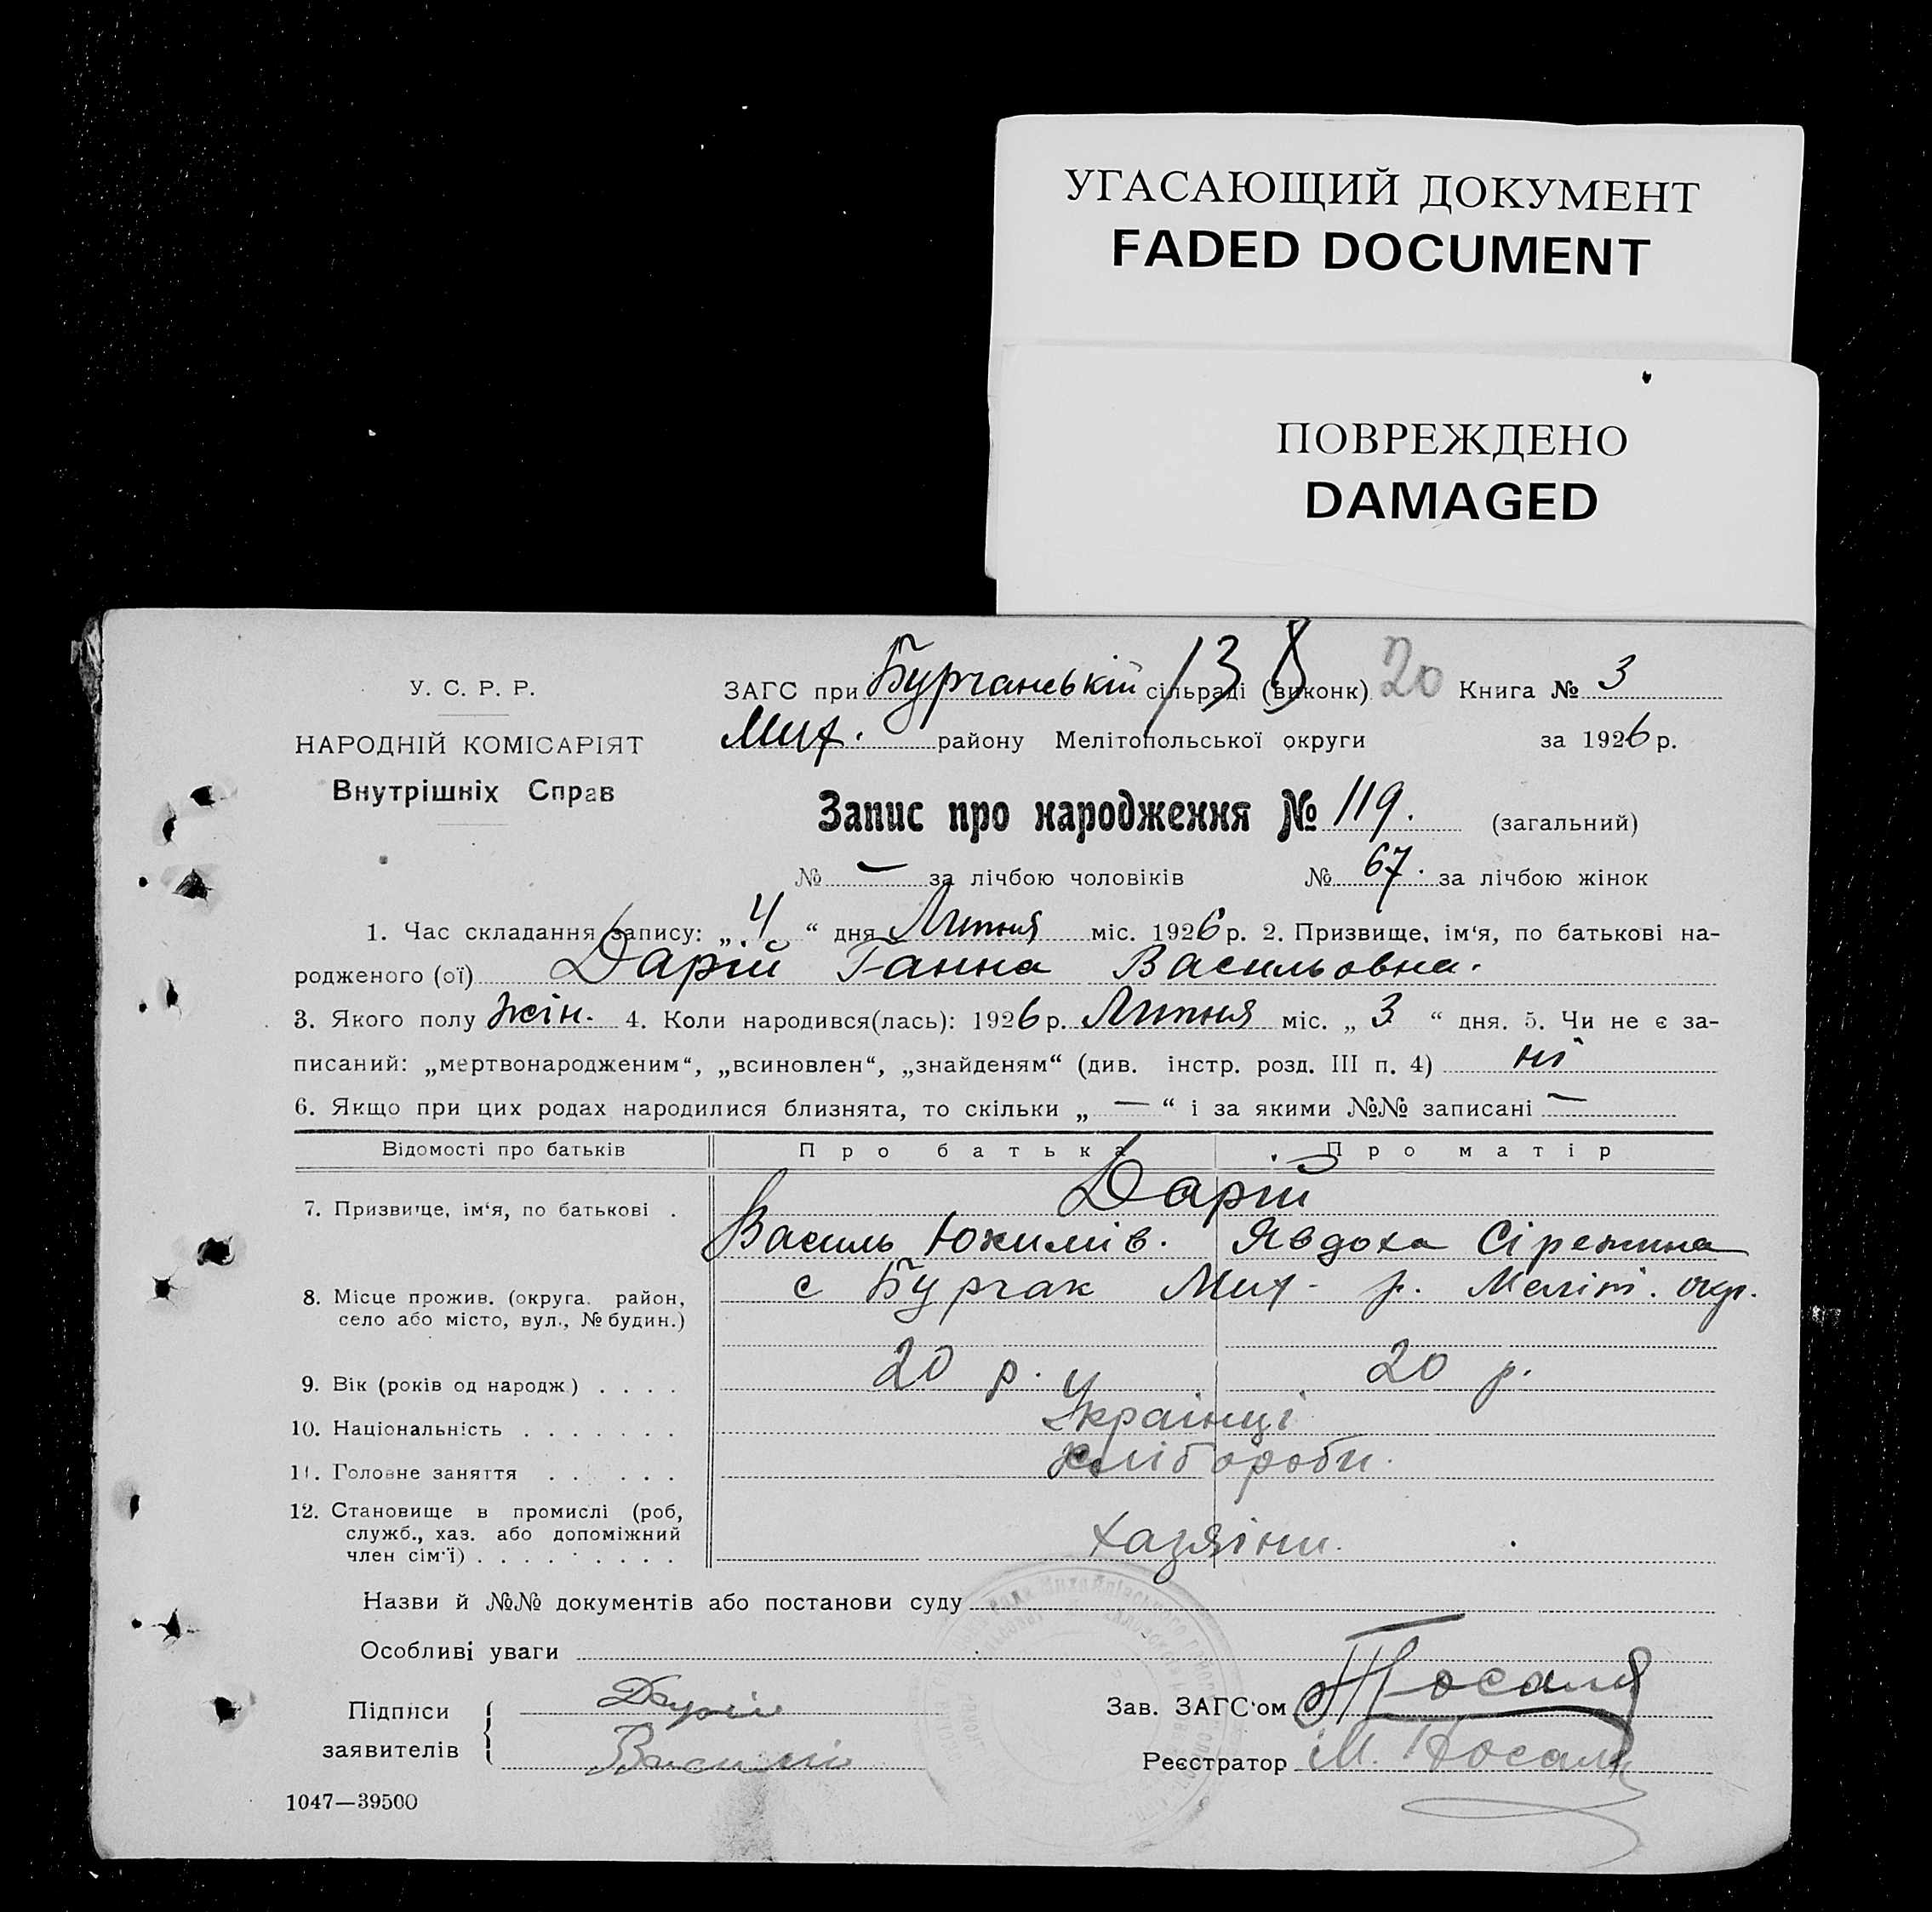 УГАСАЮЩИЙ ДОКУМЕНТ
FADED DOCUMENT
ПОВРЕЖДЕНО
DAMAGED
У. С. Р. Р.
НАРОДНІЙ КОМІСАРІЯТ
Внутрішніх Справ
ЗАГС при Бурчанській сільраді (виконк) 138 20 Книга № 3
Мих. району Мелітопольської округи за 1926 р.
Запис про народження № 119. (загальний)
№ — за лічбою чоловіків № 67. за лічбою жінок
1. Час складання запису: „4“ дня Липня міс. 1926 р. 2. Призвище, ім‘я, по батькові на-
родженого (ої) Дарій Ганна Васильовна.
3. Якого полу жін. 4. Коли народився(лась): 1926 р. Липня міс. „3“ дня. 5. Чи не є за-
писаний: „мертвонародженим“, „всиновлен“, „знайденям“ (див. інстр. розд. III п. 4) ні
6. Якщо при цих родах народилися близнята, то скільки „—“ і за якими №№ записані —
Відомості про батьків Про батька Про матір
7. Призвище, ім‘я, по батькові . Дарій
Василь Юхимів. Явдоха
8. Місце прожив. (округа. район, с Бурчак Мих. р. Меліт. окр.
село або місто, вул., № будин.)
9. Вік (років од народж.) . . . . 20 р. 20 р.
10. Національність . . . . . . . Українці
11. Головне заняття . . . . . хлібороби.
12. Становище в промислі (роб,
служб., хаз. або допоміжний
член сім‘ї) . . . . . . . . . хазяїни.
Назви й №№ документів або постанови суду
Особливі уваги
Підписи
заявителів
Дарій
Василь
Зав. ЗАГС‘ом
Реєстратор М.
1047—39500